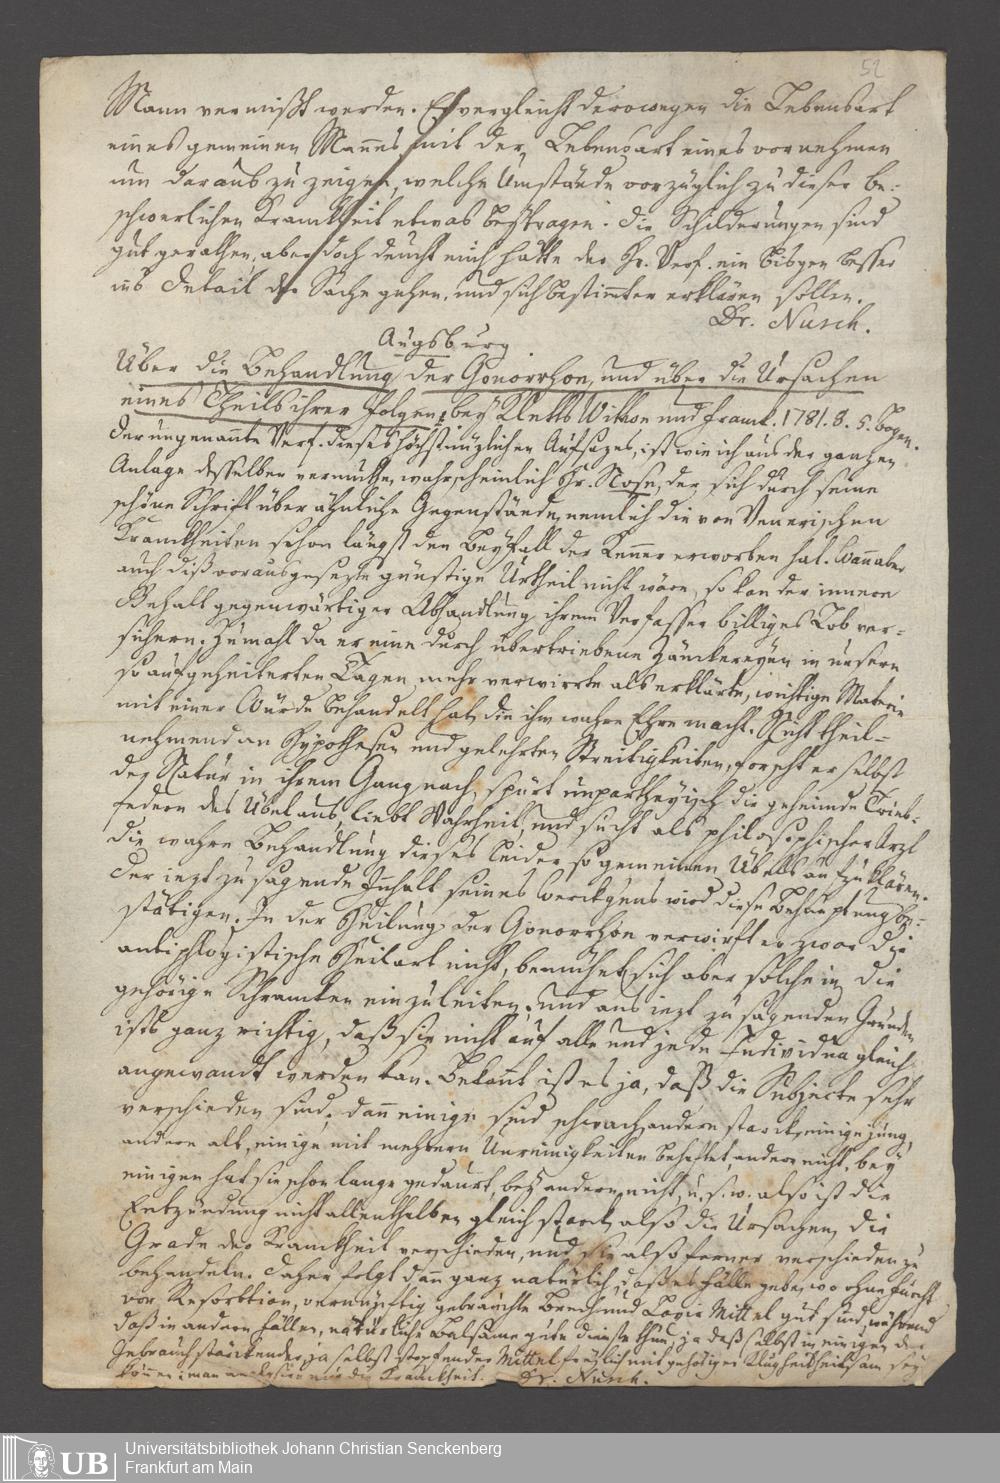 52
Mann vermißt werden. Er vergleicht derowegen die Lebensart
eines gemeinen Mannes mit der Lebensart eines vornehmen
um daraus zu zeigen, welche Umstände vorzüglich zu dieser be-
schwerlichen Kranckheit etwas beytragen. Die Schilderungen sind
gut gerathen, aber doch deucht mich hätte der Hr. Verf. ein bisgen besser
ins Detail der Sache gehen, und sich bestimter erklären sollen.
Dr. Nusch.
Augsburg
Über die Behandlung der Gonorrhoe, und über die Ursachen
eines Theils ihrer Folgen, bey Kletts Witwe und Franck. 1781. 8. 5. Bogen.
Der ungenannte Verf. dieses höchstnüzlichen Aufsazes, ist wie ich aus der ganzen
Anlage desselben vermuthe, wahrscheinlich Hr. Nose, der sich durch seine
schöne Schrift über ähnliche Gegenstände, nemlich die von Venerischen
Kranckheiten schon längst den Beyfall der Kenner erworben hat. Wann aber
auch diß vorausgesezte günstige Urtheil nicht wäre, so kan der innere
Gehalt gegenwärtiger Abhandlung ihrem Verfasser billiges Lob ver-
sichern. Zumahl da er eine durch übertriebene Zänckereyen in unsern
so aufgeheiterten Tagen mehr verwirrte als erklärte, wichtige Materie
mit einer Würde behandelt hat, die ihm wahre Ehre macht. Nicht theil-
nehmend an Hypothesen und gelehrten Streitigkeiten, forscht er selbst
der Natur in ihrem Gang nach, spürt unpartheyisch die geheimde Trieb-
federn des Übel aus, liebt Wahrheit, und sucht als philosophischer Arzt
die wahre Behandlung dieses leider so gemeinen Übels aufzuklären.
Der iezt zu sagende Inhalt seines Werckgens wird diese Behauptung be-
stätigen. In der Heilung der Gonorrhöe verwirft er zwar die
antiphlogistische Heilart nicht, bemühet sich aber solche in die
gehörige Schrancken einzuleiten, und aus iezt zu sagenden Gründen
ists ganz richtig, daß sie nicht auf alle und jede Individua gleich
angewandt werden kan. Bekannt ist es ja, daß die Subjecte sehr
verschieden sind, dann einige sind schwach, andere starck, einige jung,
andere alt, einige mit mehrern Unreinigkeiten behaftet, andere nicht, bey
einigen hat sie schon lange gedaurt, bey andern nicht, u. s. w. also ist die
Entzündung nicht allenthalben gleich starck, also die Ursachen, die
Grade der Kranckheit verschieden, und sie also ferner verschieden zu
behandeln. Daher folgt dann ganz natürlich, daß es Fälle gebe, wo ohne Furcht
vor Resorbtion, vernünftig gebrauchte Brech und Laxir Mittel gut sind, während
daß in andern Fällen, natürliche Balsame gute Dienste thun, ja daß selbst in einigen der
Gebrauch stärckender, ja selbst stopfender Mittel freylich mit gehöriger Klugheit heilsam seyn
können: man die Kranckheit. Dr. Nusch.
UB
Universitätsbibliothek Johann Christian Senckenberg
Frankfurt am Main